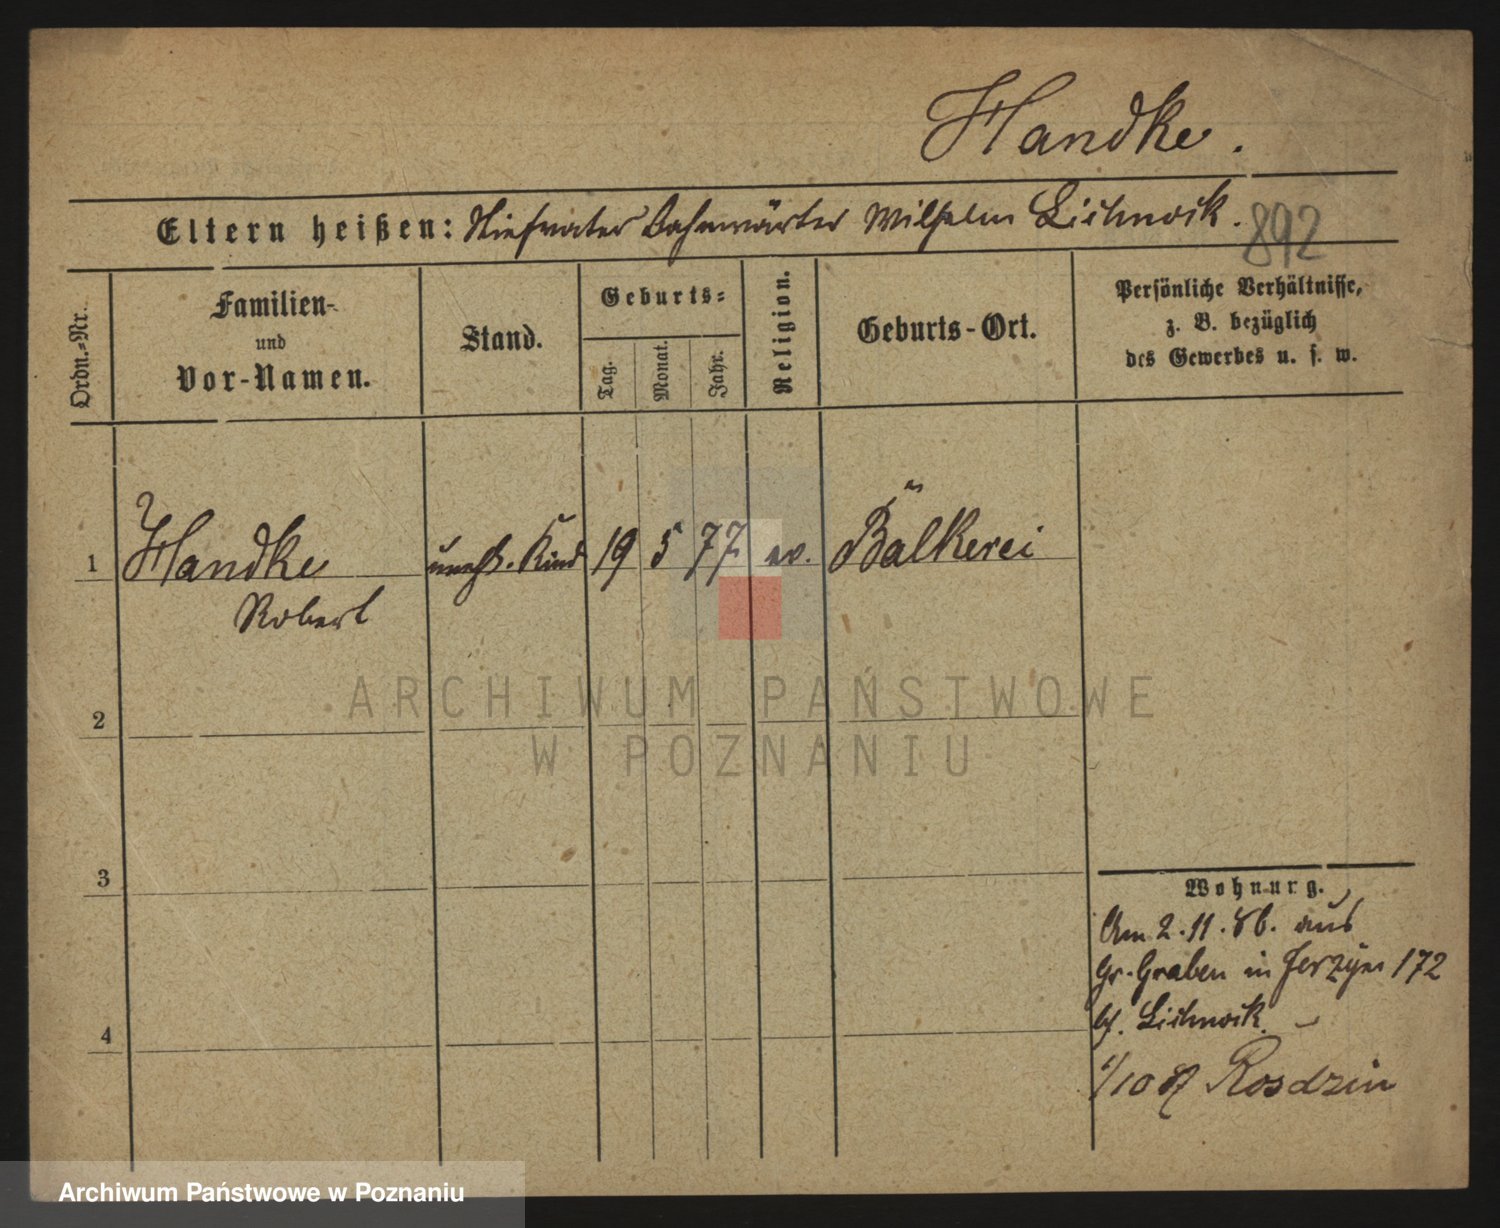 Handke.
Eltern heißen: Stiefvater Bahnwärter Wilhelm Lischnock.
892
Ordn.-Nr.
Familien-
und
Vor-Namen.
Stand.
Geburts-
Tag.
Monat.
Jahr.
Religion.
Geburts-Ort.
Persönliche Verhältnisse,
z. B. bezüglich
des Gewerbes u. s. w.
1 Handke unehl. Kind 19 5 77 ev. Bälkerei
Robert
2
3
4
Wohnung.
Am 2.11.86. aus
Gr. Graben in Jerzyce 172
b/. Lischnock.
1/10 87 Rosdzin
ARCHIWUM PAŃSTWOWE
W POZNANIU
Archiwum Państwowe w Poznaniu